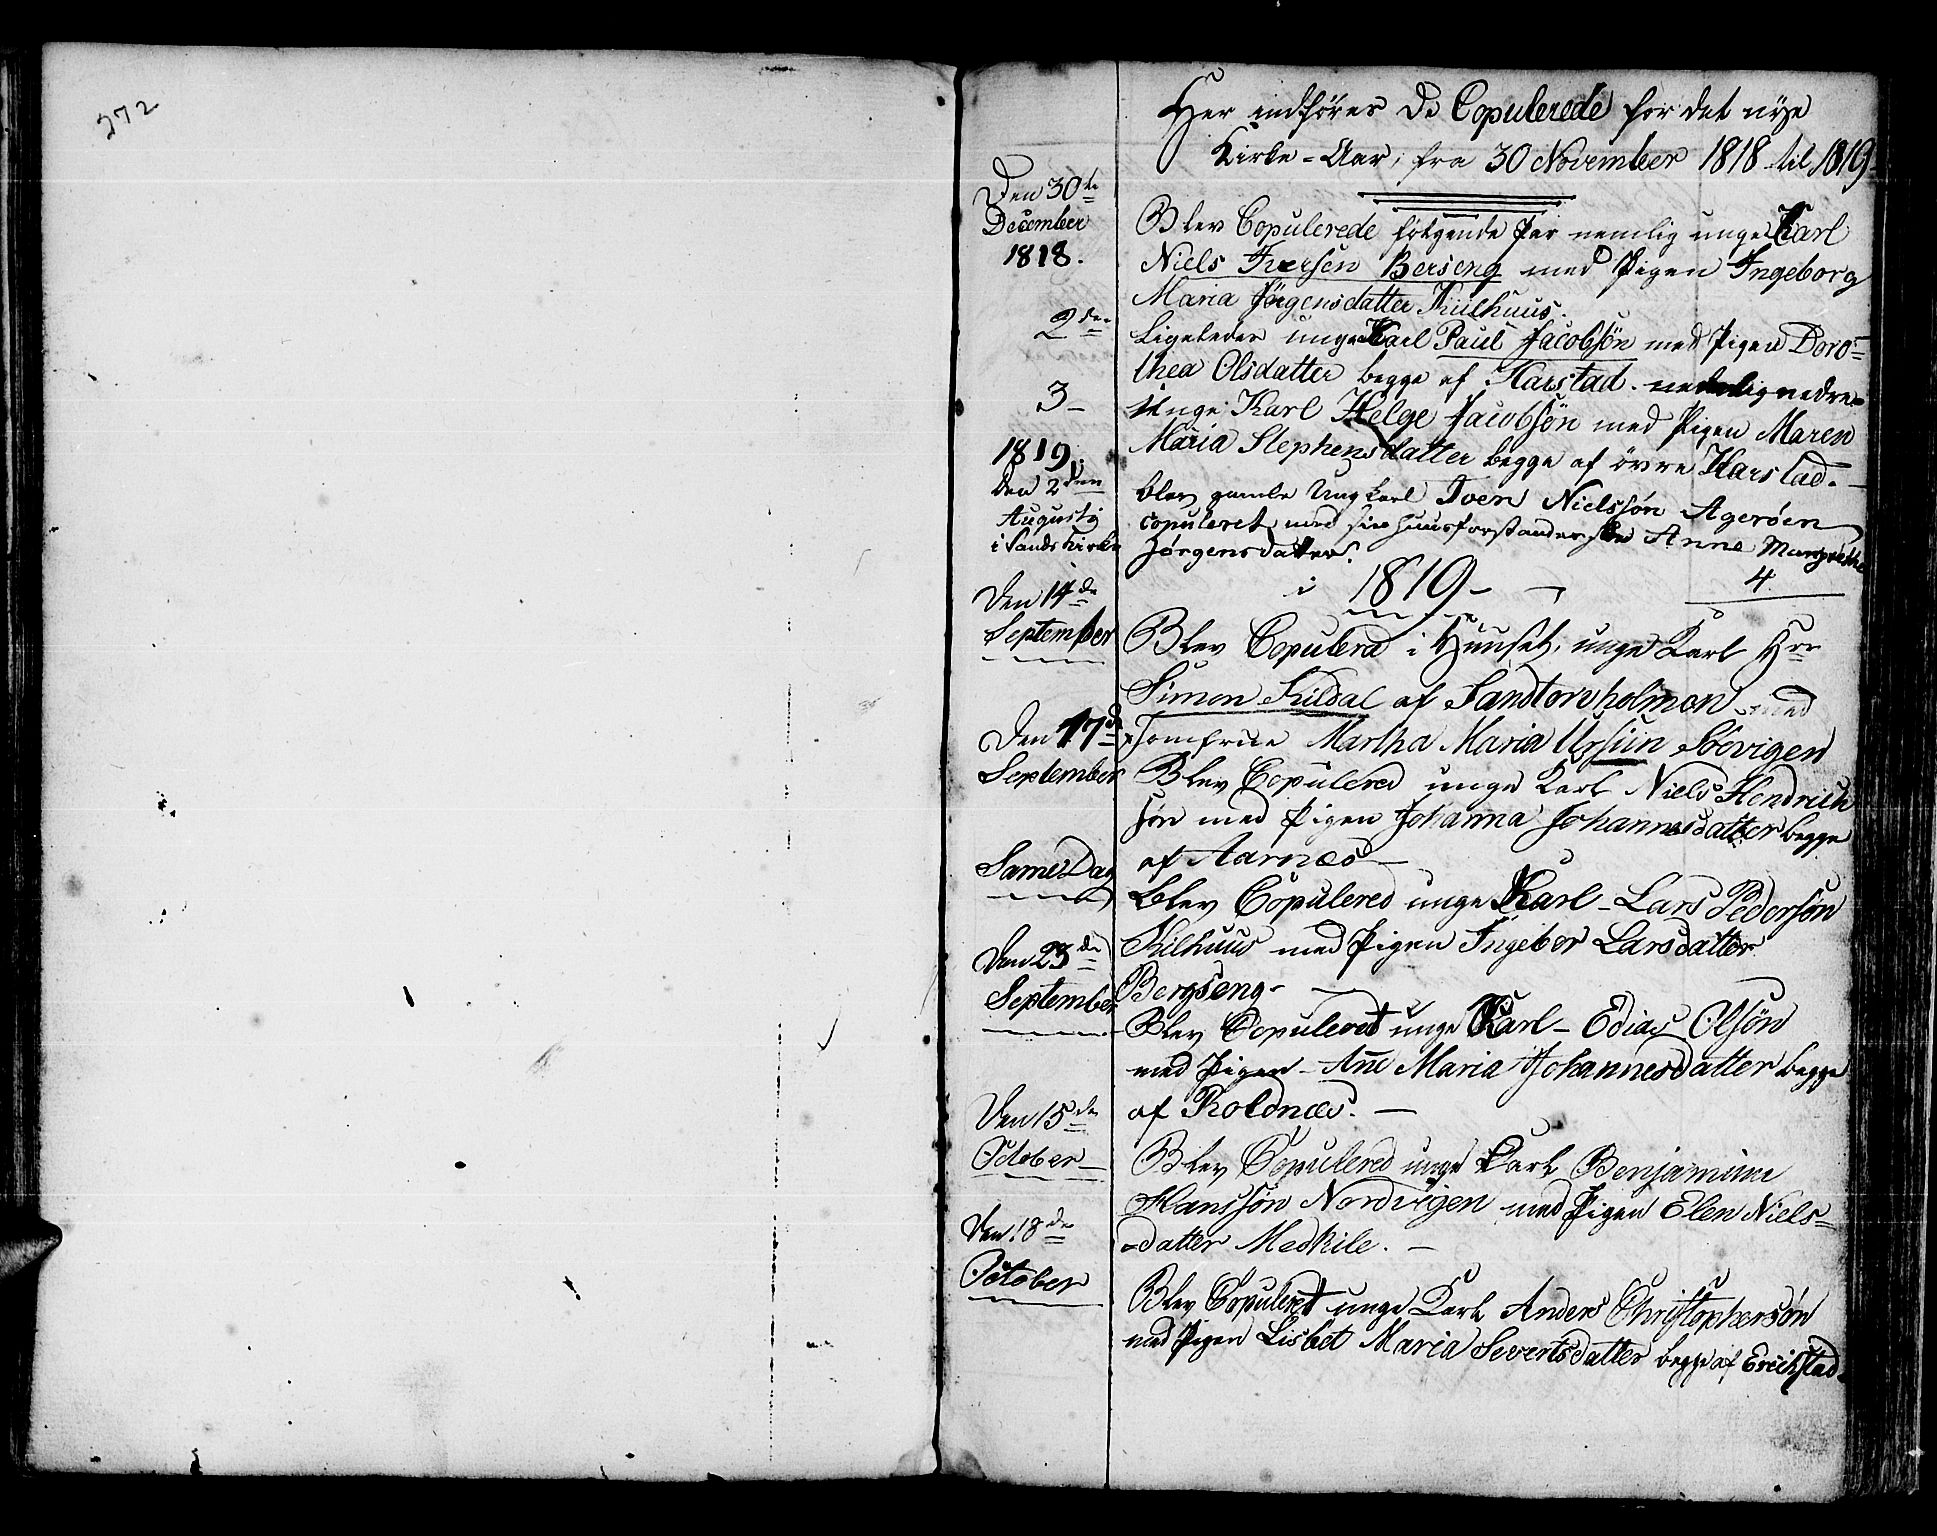 272
Her indføres de Copulerede for det nÿe
Kirke-Aar, fra 30 November 1818 til 1819
Den 30te
December
1818.
Blev Copulerede følgende Par nemlig unge Karl
Niels Iversen Berseng med Pigen Ingeborg
Maria Jörgensdatter Kiilhuus.
2den
Ligeledes unge Karl Paul Jacobsön med Pigen Doro=
thea Olsdatter begge af Harstad nedre
3-
Unge Karl Helge Jacobsön med Pigen Maren
Maria Stephensdatter begge af övre Harstad.
1819.
Den 2den
Augustij
i Sands Kirke
blev gamle Ungkarl Iver Nielssön Agerøen
copuleret med sin Huusforstanderske Anne Margrethe
Jørgensdatter.
4
i 1819-
Den 14de
September
Blev Copulered i Huuset, unge Karl Hr
Simon Kildal af Sandtorvholmen med
Jomfrue Martha Maria Ursiin Sövigen
Den 17de
September
Blev Copulered unge Karl Niels Hendrich
sön med Pigen Johanna Johannesdatter begge
af Aarnæs
Same Dag
blev Copulered unge Karl - Lars Pedersön
Kilhuus med Pigen Ingeber Larsdatter
Bergseng-
Den 23de
September
Blev Copuleret unge Karl - Edias Olsön
med Pigen - Añe Maria Johannesdatter begge
af Roldnæs.
Den 15de
October
Blev Copulered unge Karl Benjamin
Hanssön Nordvigen med Pigen Elen Niels=
=datter Medkile.
Den 18de
October
Blev Copuleret unge Karl Anders Christophersön
med Pigen Lisbet Maria Severtsdatter begge af Erichstad.